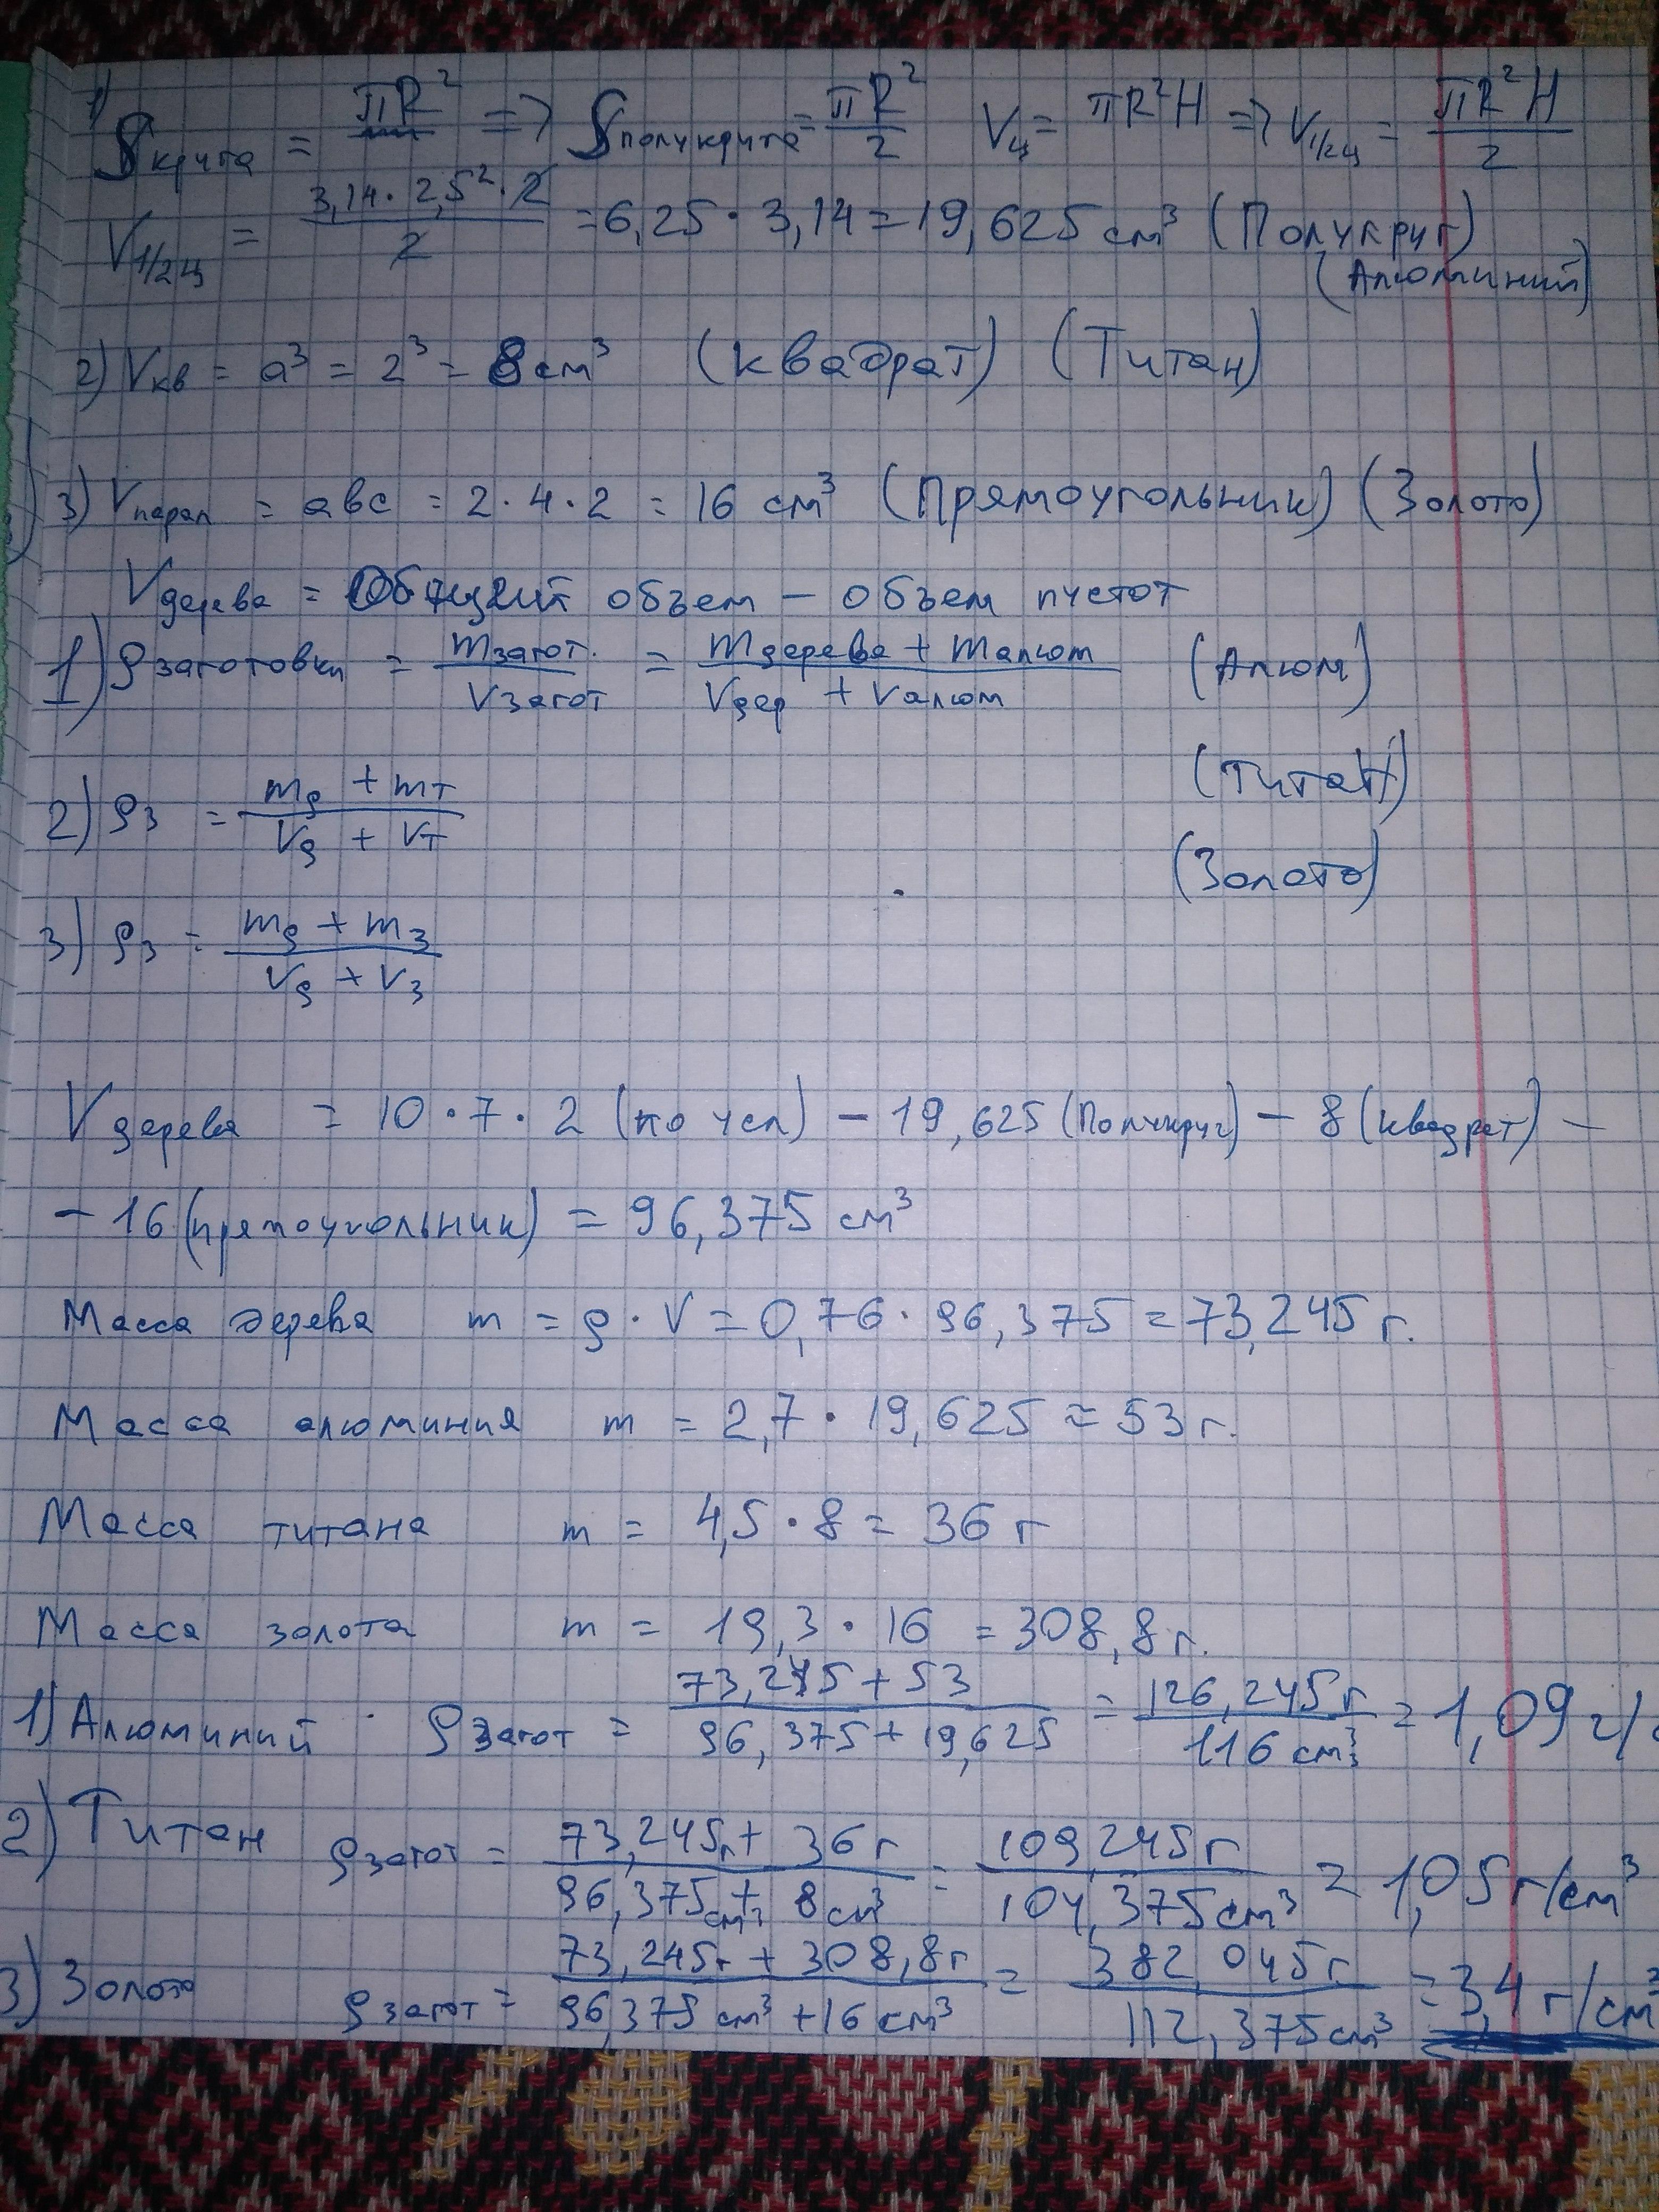 1) Sкруга = πR² => Sполукруга = πR²/2 Vц = πR²H => V1/2ц = πR²H/2
V1/2ц = 3,14·2,5²·2/2 = 6,25·3,14 = 19,625 см³ (Полукруг)
(Алюминий)
2) Vкв = a³ = 2³ = 8 см³ (квадрат) (Титан)
3) Vпарал = abc = 2·4·2 = 16 см³ (Прямоугольник) (Золото)
Vдерева = Общий объем – объем пустот
1) ρзаготовки = mзагот./Vзагот = mдерева + mалюм/Vдер + Vалюм (Алюм)
(Титан)
2) ρз = mд + mт/Vд + Vт
(Золото)
3) ρз = mд + mз/Vд + Vз
Vдерева = 10·7·2 (по усл) – 19,625 (Полукруг) – 8 (квадрат) –
– 16 (прямоугольник) = 96,375 см³
Масса дерева m = ρ·V = 0,76·96,375 = 73,245 г.
Масса алюминия m = 2,7·19,625 ≈ 53 г.
Масса титана m = 4,5·8 = 36 г
Масса золота m = 19,3·16 = 308,8 г.
1) Алюминий ρзагот = 73,245 + 53/96,375 + 19,625 = 126,245 г/116 см³ = 1,09 г/
2) Титан ρзагот = 73,245г + 36 г/96,375см³ + 8см³ = 109,245 г/104,375см³ = 1,05 г/см³
3) Золото ρзагот = 73,245г + 308,8г/96,375 см³ + 16 см³ = 382,045г/112,375см³ = 3,4 г/см³